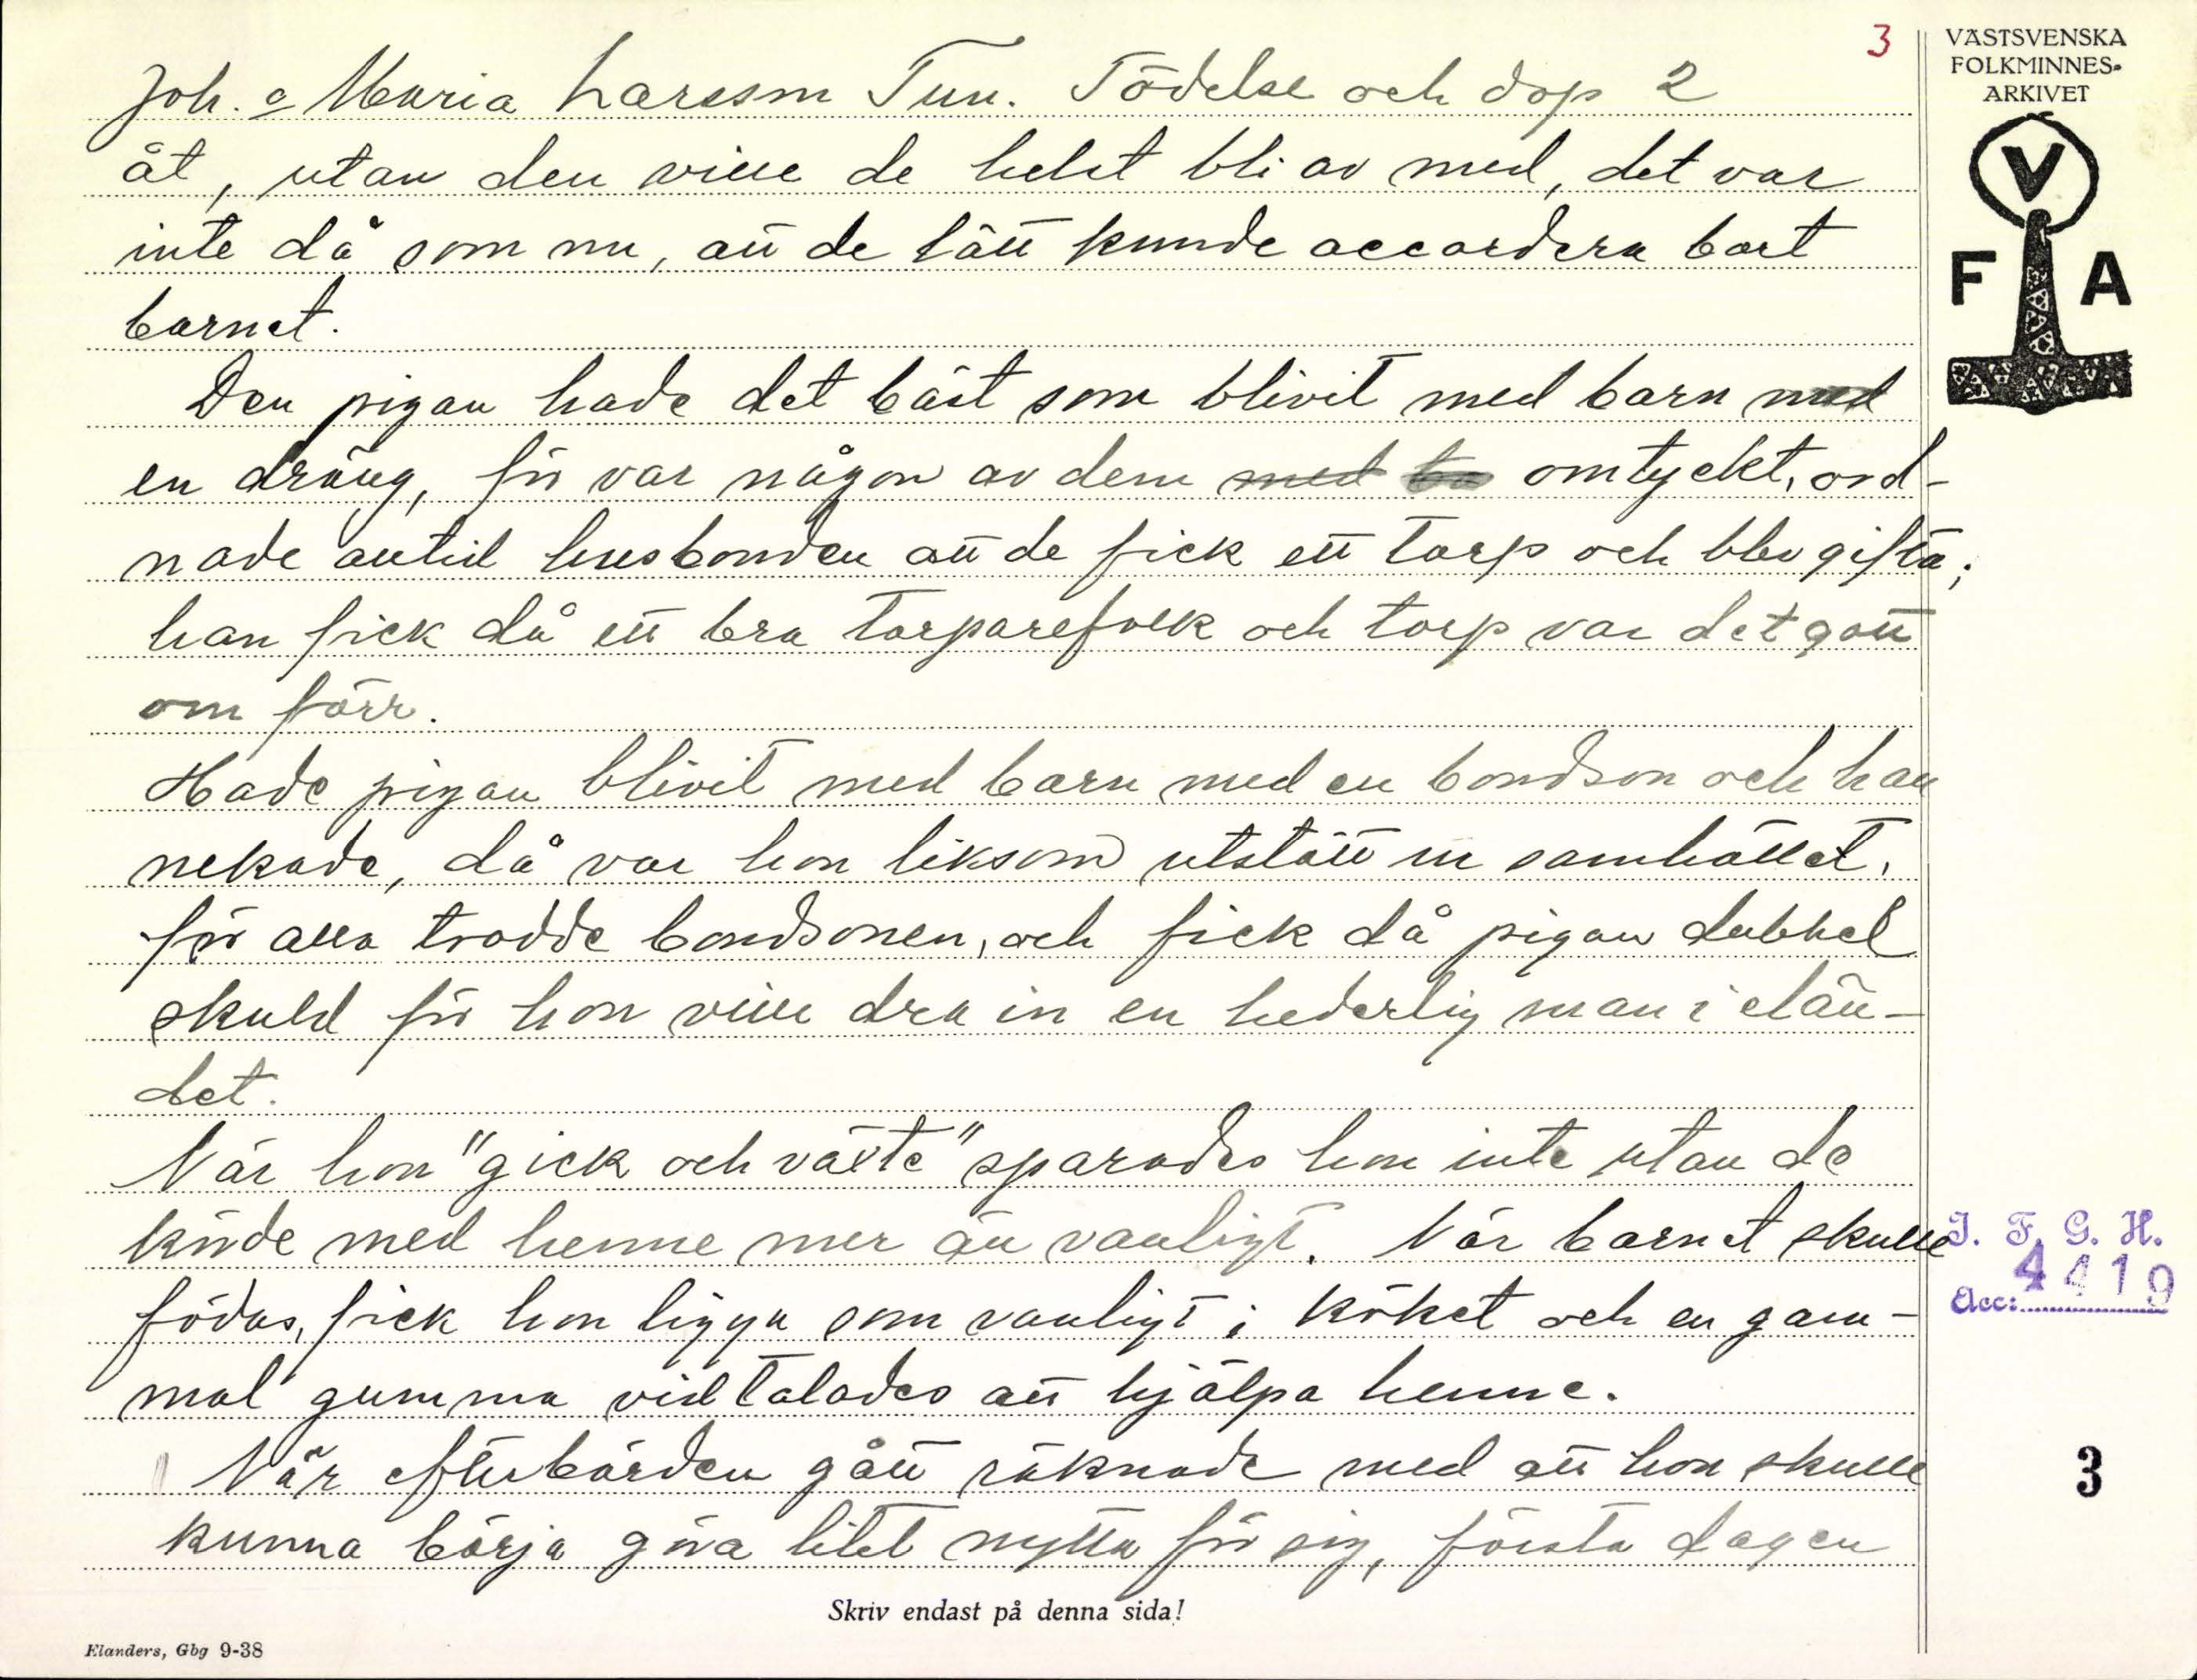 3
VÄSTSVENSKA
FOLKMINNES-
ARKIVET
V
F A
Joh. o Maria Larsson Tun. Födelse och dop 2
åt, utan den ville de helst bli av med, det var
inte då som nu, att de lätt kunde accordera bort
barnet.
Den pigan hade det bäst som blivit med barn med
en dräng, för var någon av dem med ba omtyckt, ord-
nade antid husbonden att de fick ett torp och blev gifta;
han fick då ett bra torparefolk och torp var det gott
om förr.
Hade pigan blivit med barn med en bondson och han
nekade, då var hon liksom utstött ur samhället,
för alla trodde bondsonen, och fick då pigan dubbel
skuld för hon ville dra in en hederlig man i elän-
det.
När hon "gick och växte" sparades hon inte utan de
körde med henne mer än vanligt. När barnet skulle
födas, fick hon ligga som vanligt i köket och en gam-
mal gumma vidtalades att hjälpa henne.
När efterbörden gått räknade med att hon skulle
kunna börja göra litet nytta för sig, första dagen
I. F. G. H.
Acc: 4419
3
Skriv endast på denna sida!
Elanders, Gbg 9-38